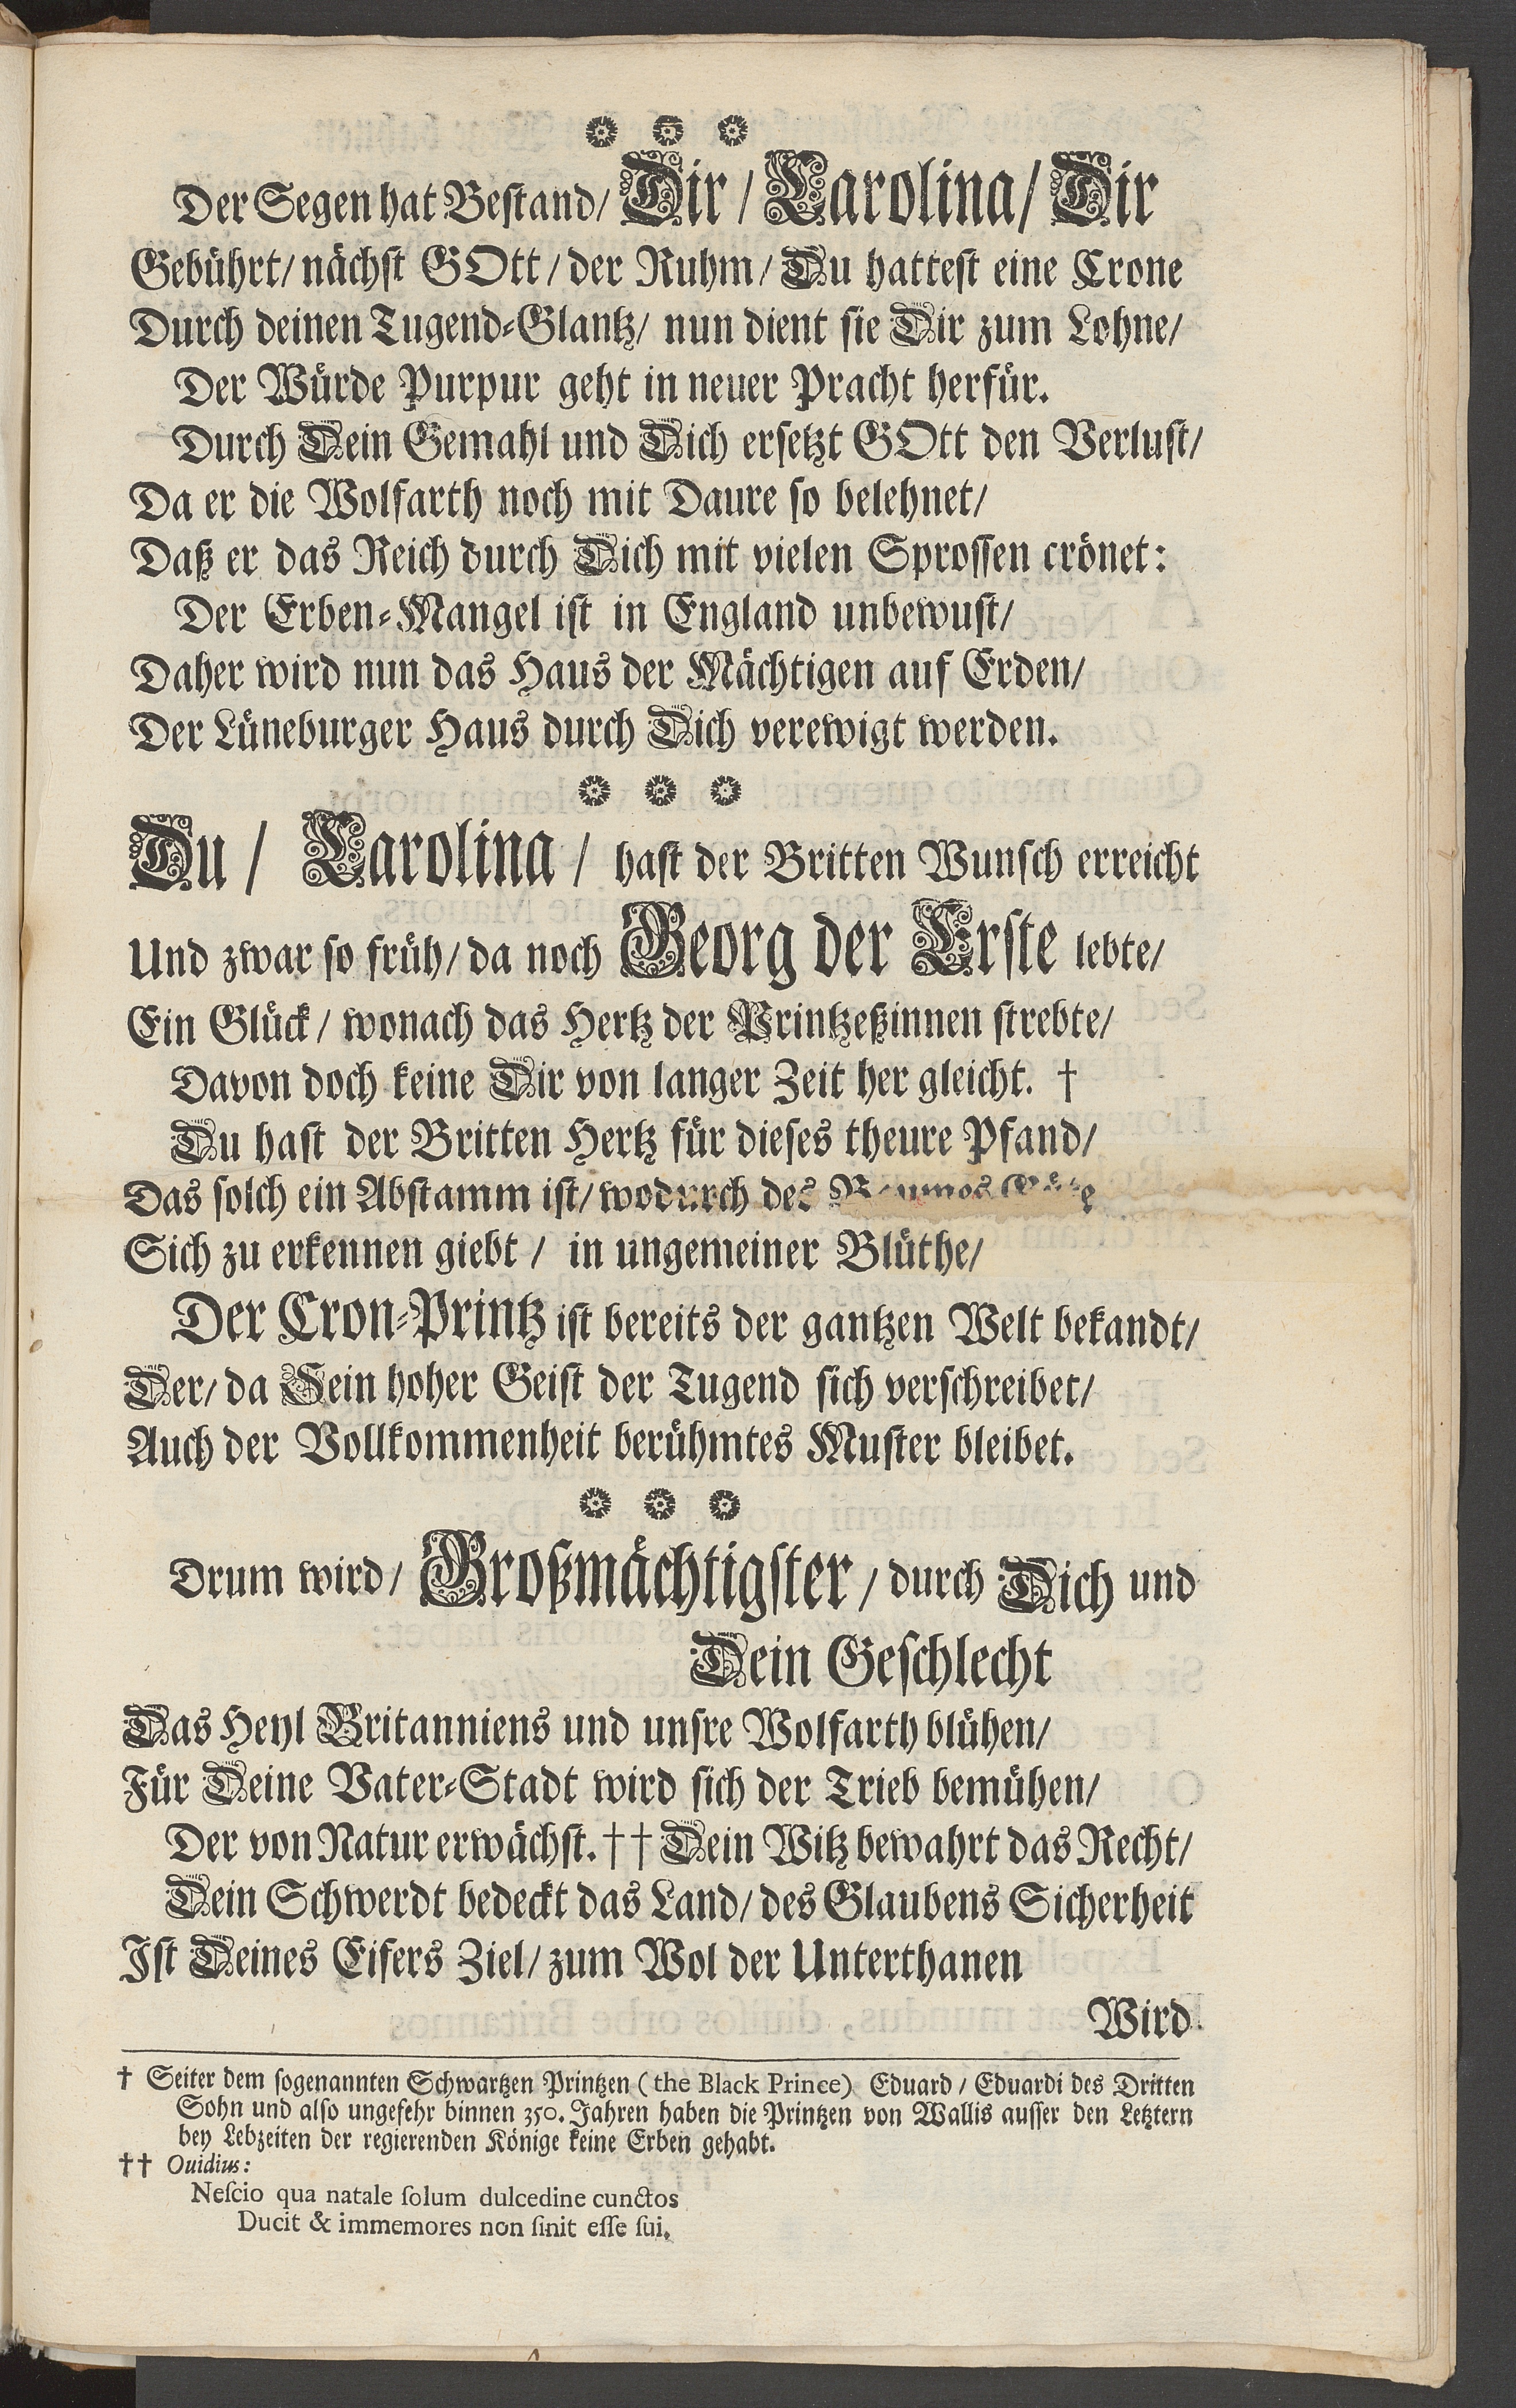 Der Segen hat Bestand/ Dir/ Carolina/ Dir
Gebührt/ nächst GOtt/ der Ruhm/ Du hattest eine Crone
Durch deinen Tugend-Glantz/ nun dient sie Dir zum Lohne/
Der Würde Purpur geht in neuer Pracht herfür.
Durch Dein Gemahl und Dich ersetzt GOtt den Verlust/
Da er die Wolfarth noch mit Daure so belehnet/
Daß er das Reich durch Dich mit vielen Sprossen crönet:
Der Erben-Mangel ist in England unbewust/
Daher wird nun das Haus der Mächtigen auf Erden/
Der Lüneburger Haus durch Dich verewigt werden.
Du/ Carolina/ hast der Britten Wunsch erreicht
Und zwar so früh/ da noch Georg der Erste lebte/
Ein Glück/ wonach das Hertz der Printzeßinnen strebte/
Davon doch keine Dir von langer Zeit her gleicht. †
Du hast der Britten Hertz für dieses theure Pfand/
Das solch ein Abstamm ist/ wodurch des
Sich zu erkennen giebt/ in ungemeiner Blüthe/
Der Cron-Printz ist bereits der gantzen Welt bekandt/
Der/ da Sein hoher Geist der Tugend sich verschreibet/
Auch der Vollkommenheit berühmtes Muster bleibet.
Drum wird/ Großmächtigster/ durch Dich und
Dein Geschlecht
Das Heyl Britanniens und unsre Wolfarth blühen/
Für Deine Vater-Stadt wird sich der Trieb bemühen/
Der von Natur erwächst. †† Dein Witz bewahrt das Recht/
Dein Schwerdt bedeckt das Land/ des Glaubens Sicherheit
Ist Deines Eifers Ziel/ zum Wol der Unterthanen
Wird
† Seiter dem sogenannten Schwartzen Printzen (the Black Prince) Eduard/ Eduardi des Dritten
Sohn und also ungefehr binnen 350. Jahren haben die Printzen von Wallis ausser den Letztern
bey Lebzeiten der regierenden Könige keine Erben gehabt.
†† Ouidius:
Nescio qua natale solum dulcedine cunctos
Ducit & immemores non sinit esse sui.